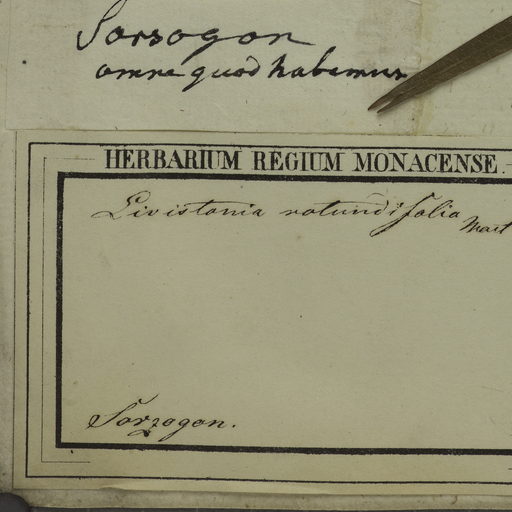 Sorsogon
omne quod habemus
HERBARIUM REGIUM MONACENSE.
Livistonia rotundifolia
Mart
Sorzogon.